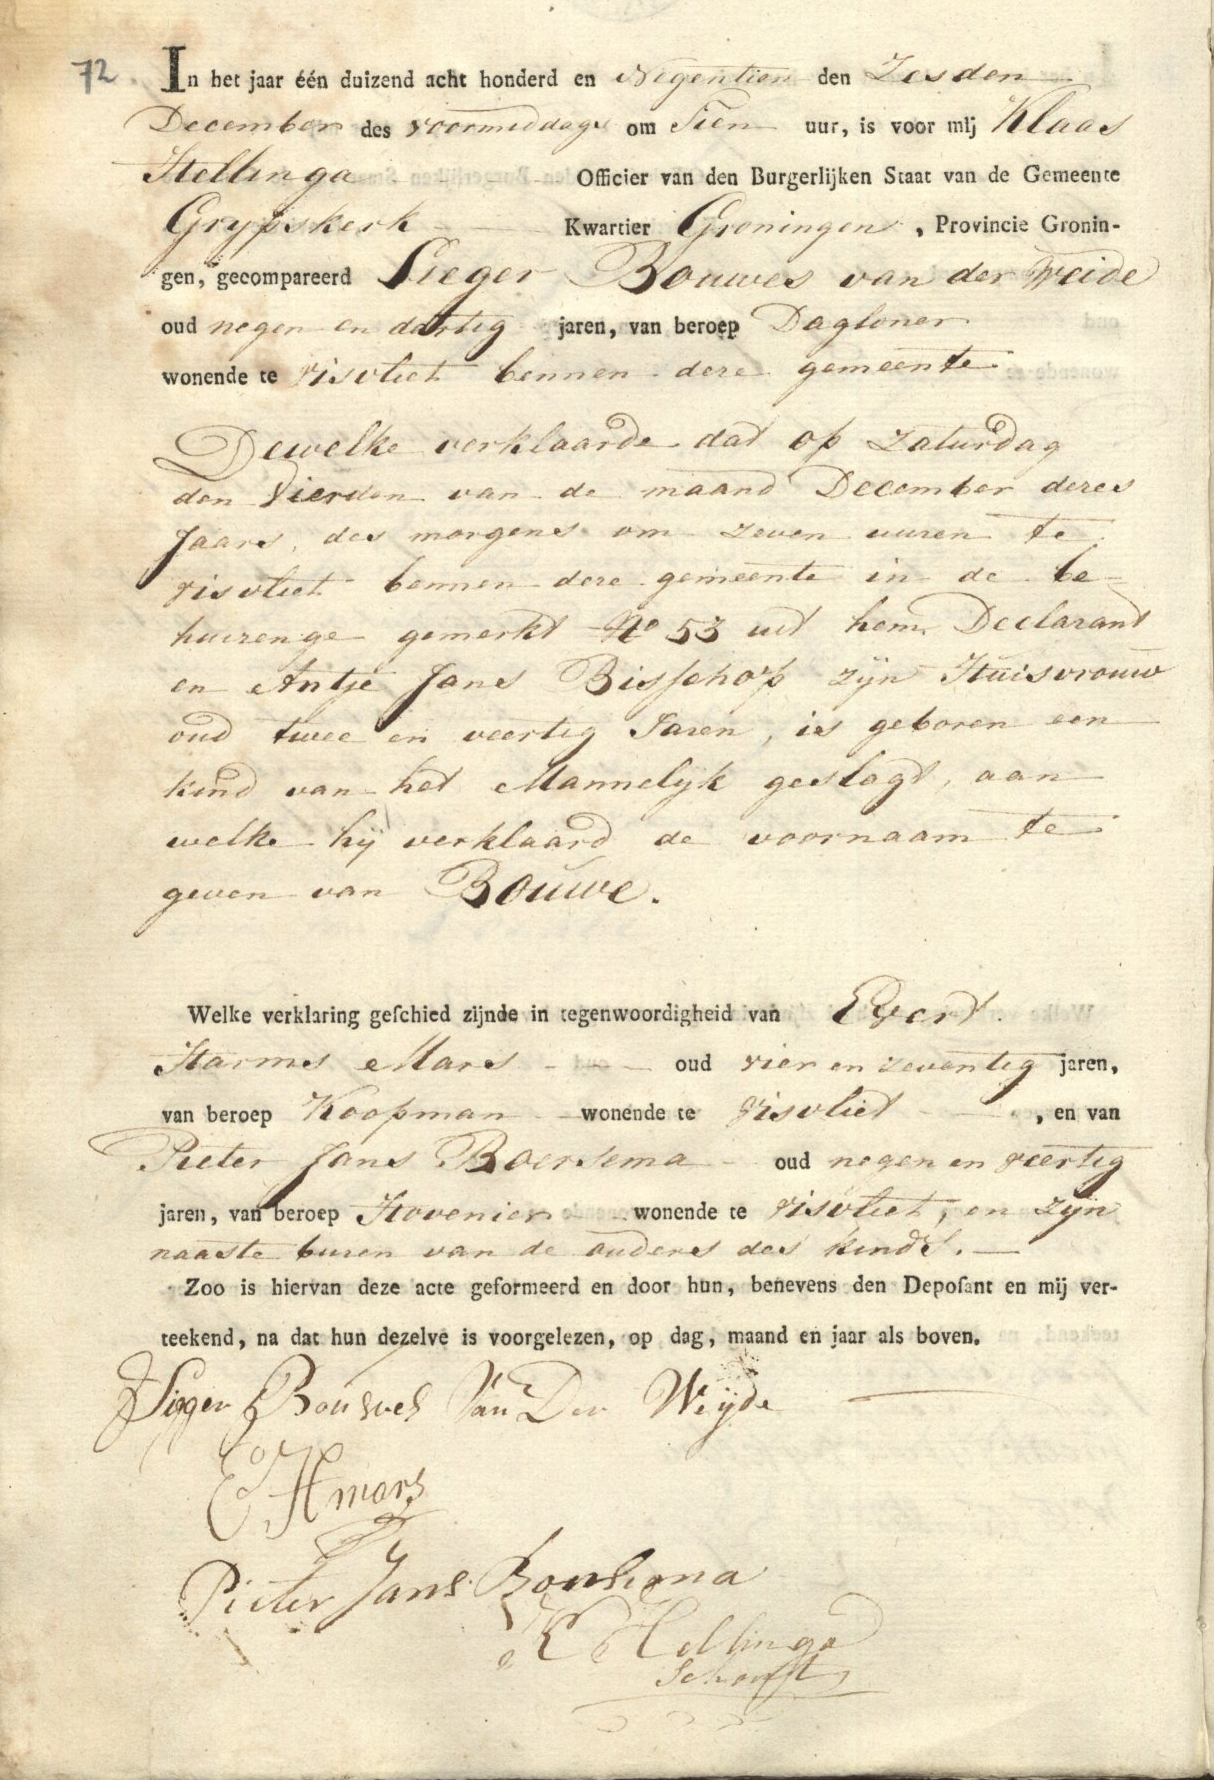 72. In het jaar één duizend acht honderd en Negentien den Zesden
December des voormiddags om Tien uur, is voor mij Klaas
Hellinga Officier van den Burgerlijken Staat van de Gemeente
Grypskerk Kwartier Groningen, Provincie Gronin-
gen, gecompareerd Sieger Bouwes van der Weide
oud negen en dartig jaren, van beroep Dagloner
wonende te Visvliet bennen dere gemeente
Dewelke verklaarde dat op Zaturdag
den Vierden van de maand December deres
Jaars, des morgens om zeven uuren te
Visvliet bennen dere gemeente in de be-
huizenge gemerkt No 53 uit hem Declarant
en Antje Jans Bisschop zijn Huisvrouw
oud twee en veertig Jaren, is geboren een
kind van het Mannelyk geslagt, aan
welke hij verklaard de voornaam te
geven van Bouwe.
Welke verklaring geschied zijnde in tegenwoordigheid van Evert
Harms Mars oud vier en zeventig jaren,
van beroep Koopman wonende te Visvliet, en van
Pieter Jans Boersema oud negen en veertig
jaren, van beroep Hovenier wonende te Visvliet, en zijn
naaste buren van de ouders des kinds.
Zoo is hiervan deze acte geformeerd en door hun, benevens den Deposant en mij ver-
teekend, na dat hun dezelve is voorgelezen, op dag, maand en jaar als boven.
Sieger Bouwes Van Der Weijde
E H mars
Pieter Jans Boersema
K Hellinga
Schout